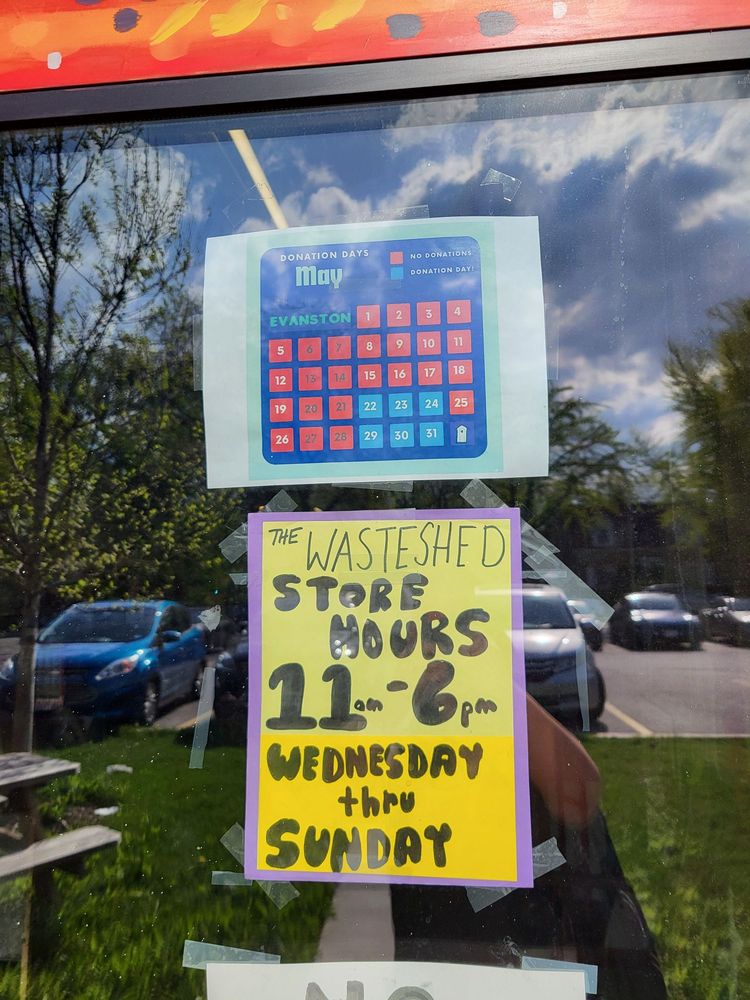 DONATION DAYS
May
NO DONATIONS
DONATION DAY!
EVANSTON 1 2 3 4
5 6 7 8 9 10 11
12 13 14 15 16 17 18
19 20 21 22 23 24 25
26 27 28 29 30 31
THE WASTESHED
STORE
HOURS
11am-6pm
WEDNESDAY
thru
SUNDAY
NO